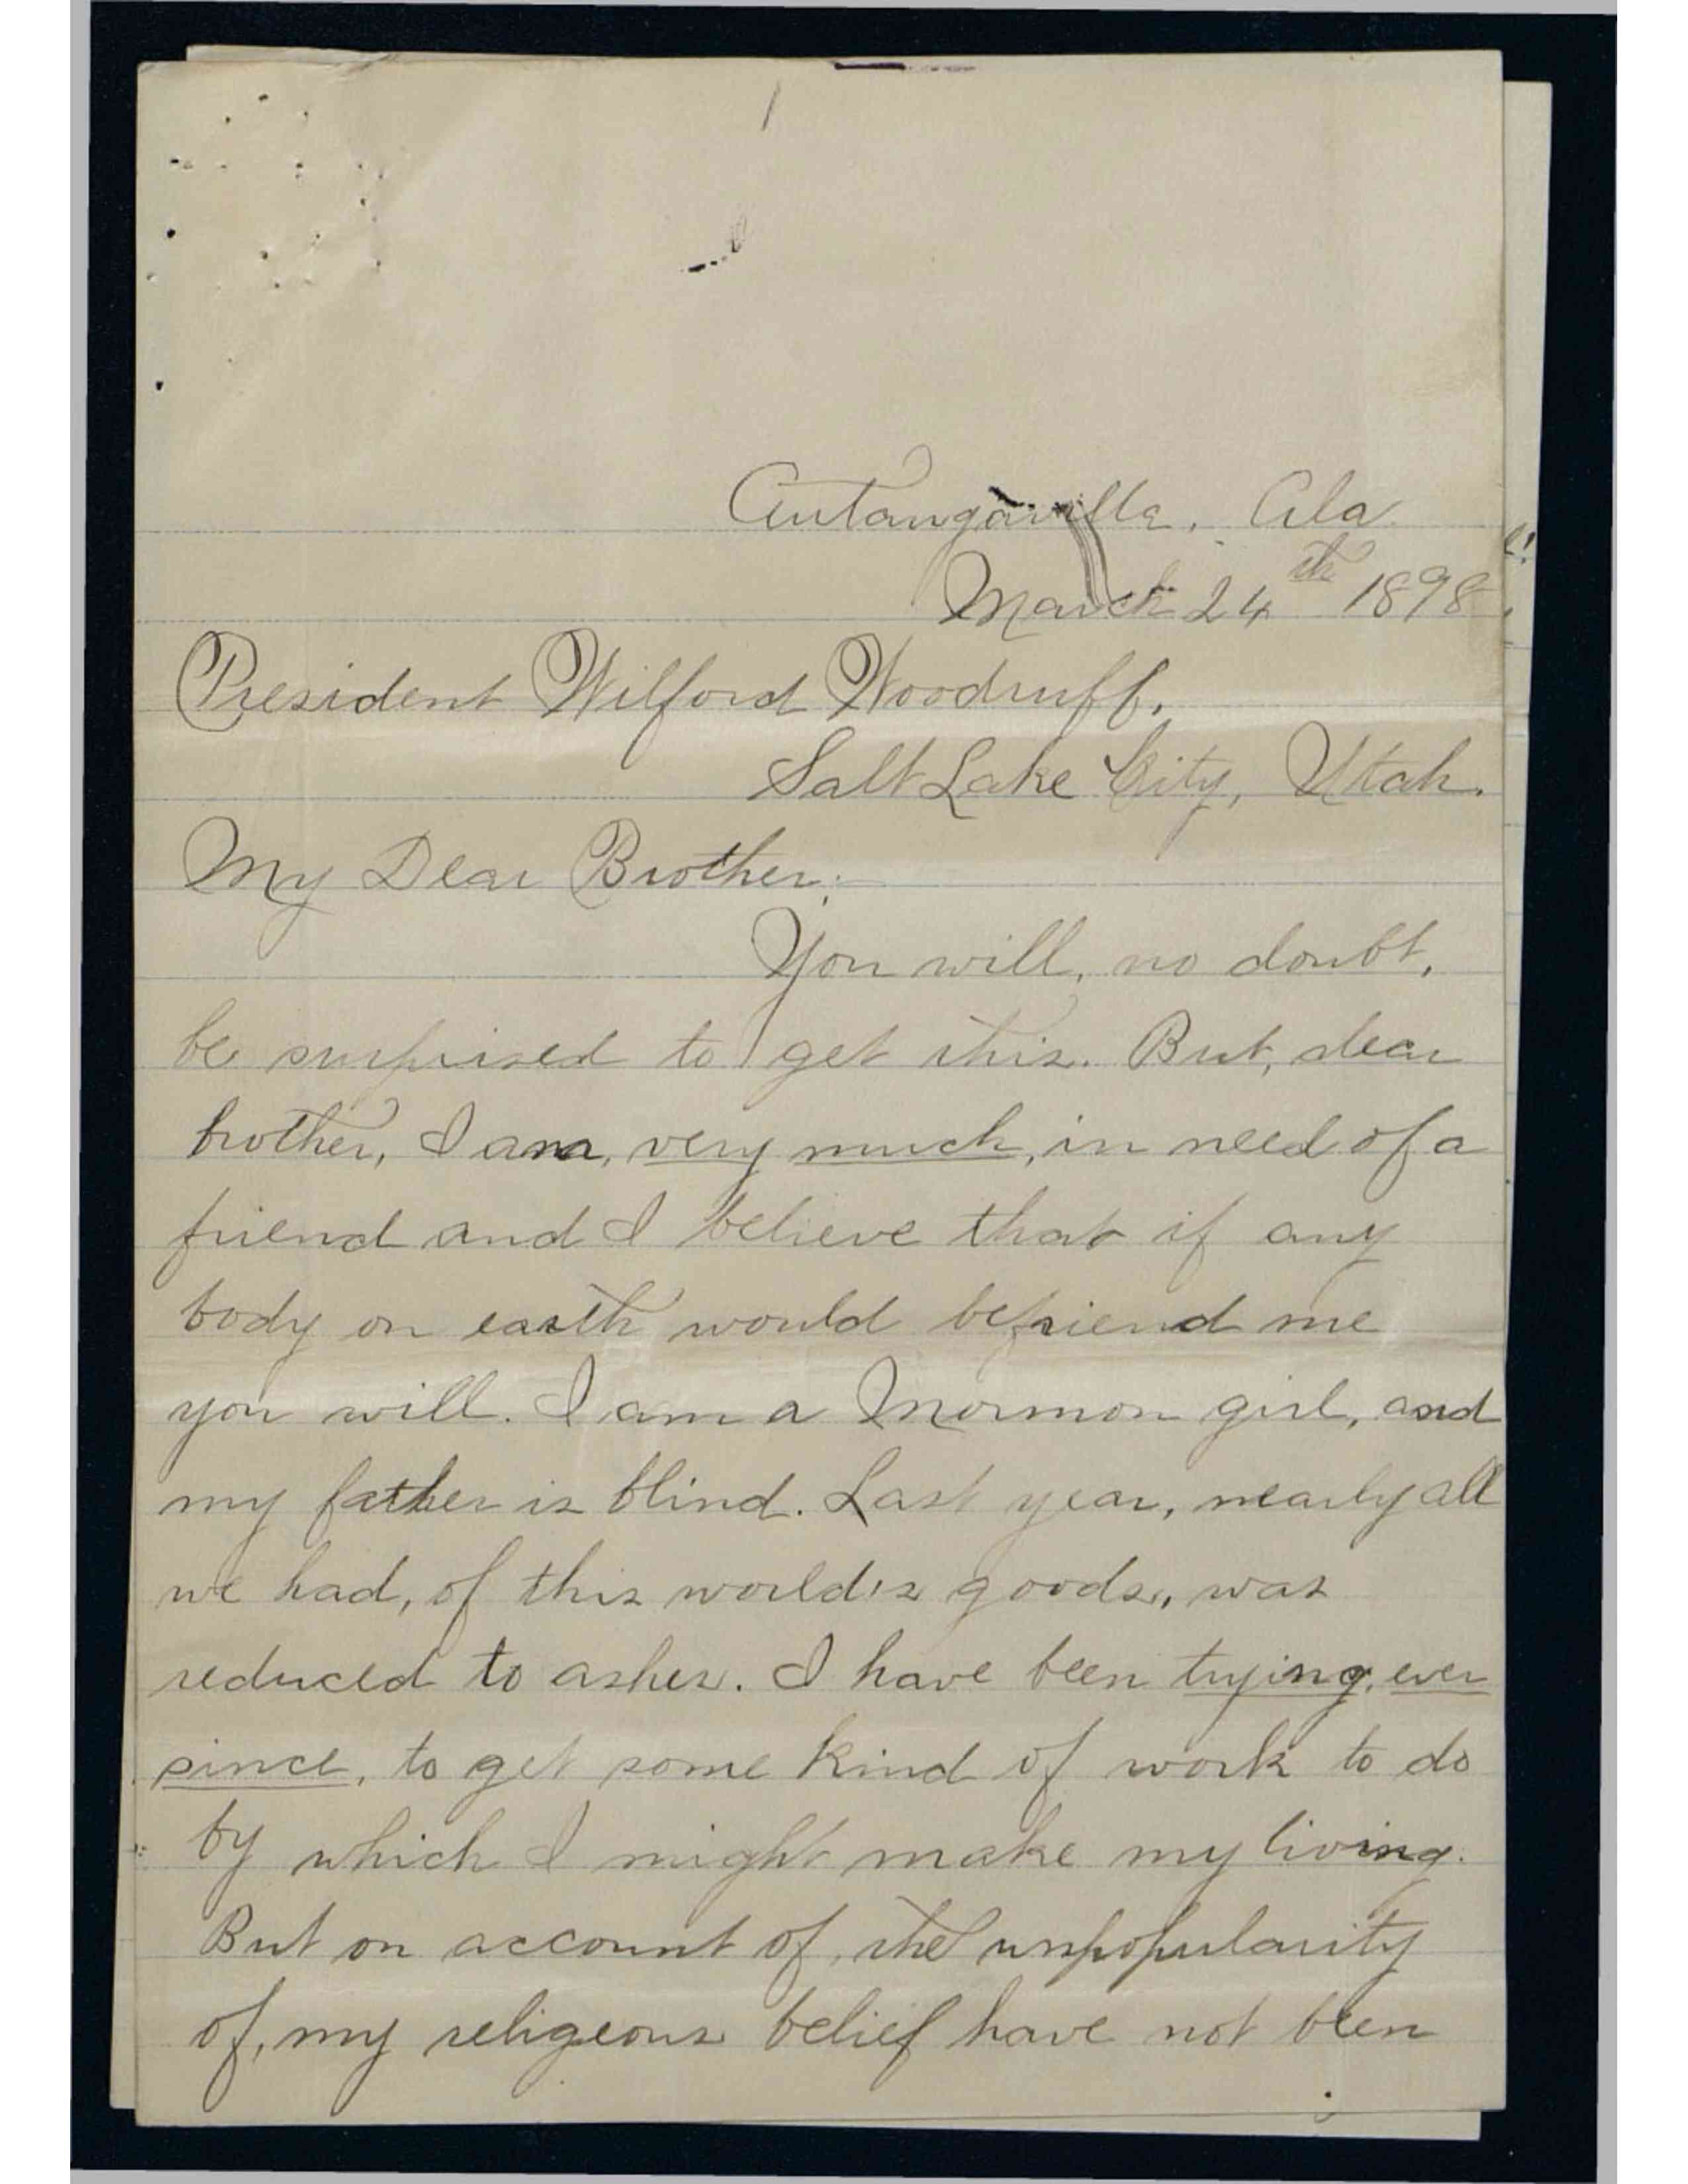 Autaugaville, Ala.
March 24th 1898
President Wilford Woodruff.
Salt Lake City, Utah.
My Dear Brother:
You will, no doubt,
be surprised to get this. But, dear
brother, I am, very much, in need of a
friend and I believe that if any
body on earth would befriend me
you will. I am a Mormon girl, and
my father is blind. Last year, nearly all
we had, of this world's goods, was
reduced to ashes. I have been trying, ever
since, to get some kind of work to do
by which I might make my living.
But on account of, the unpopularity
of, my religeous belief have not been